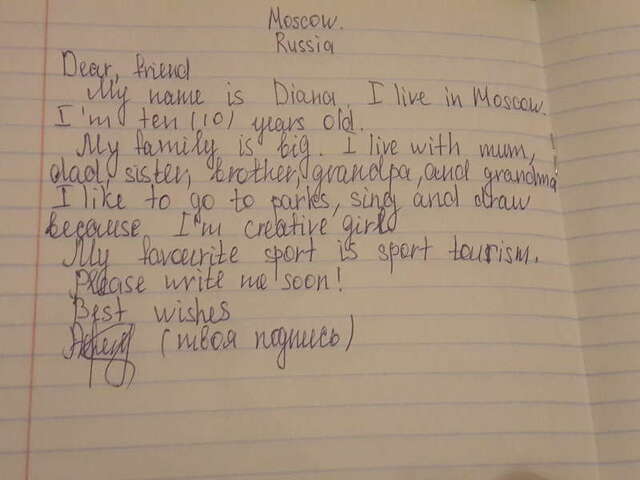 Moscow.
Russia
Dear, friend
My name is Diana. I live in Moscow.
I'm ten (10) years old.
My family is big. I live with mum,
dad, sister, brother, grandpa, and grandma
I like to go to parks, sing and draw
because I'm creative girl
My favourite sport is sport tourism.
Please write me soon!
Best wishes
(твоя подпись)